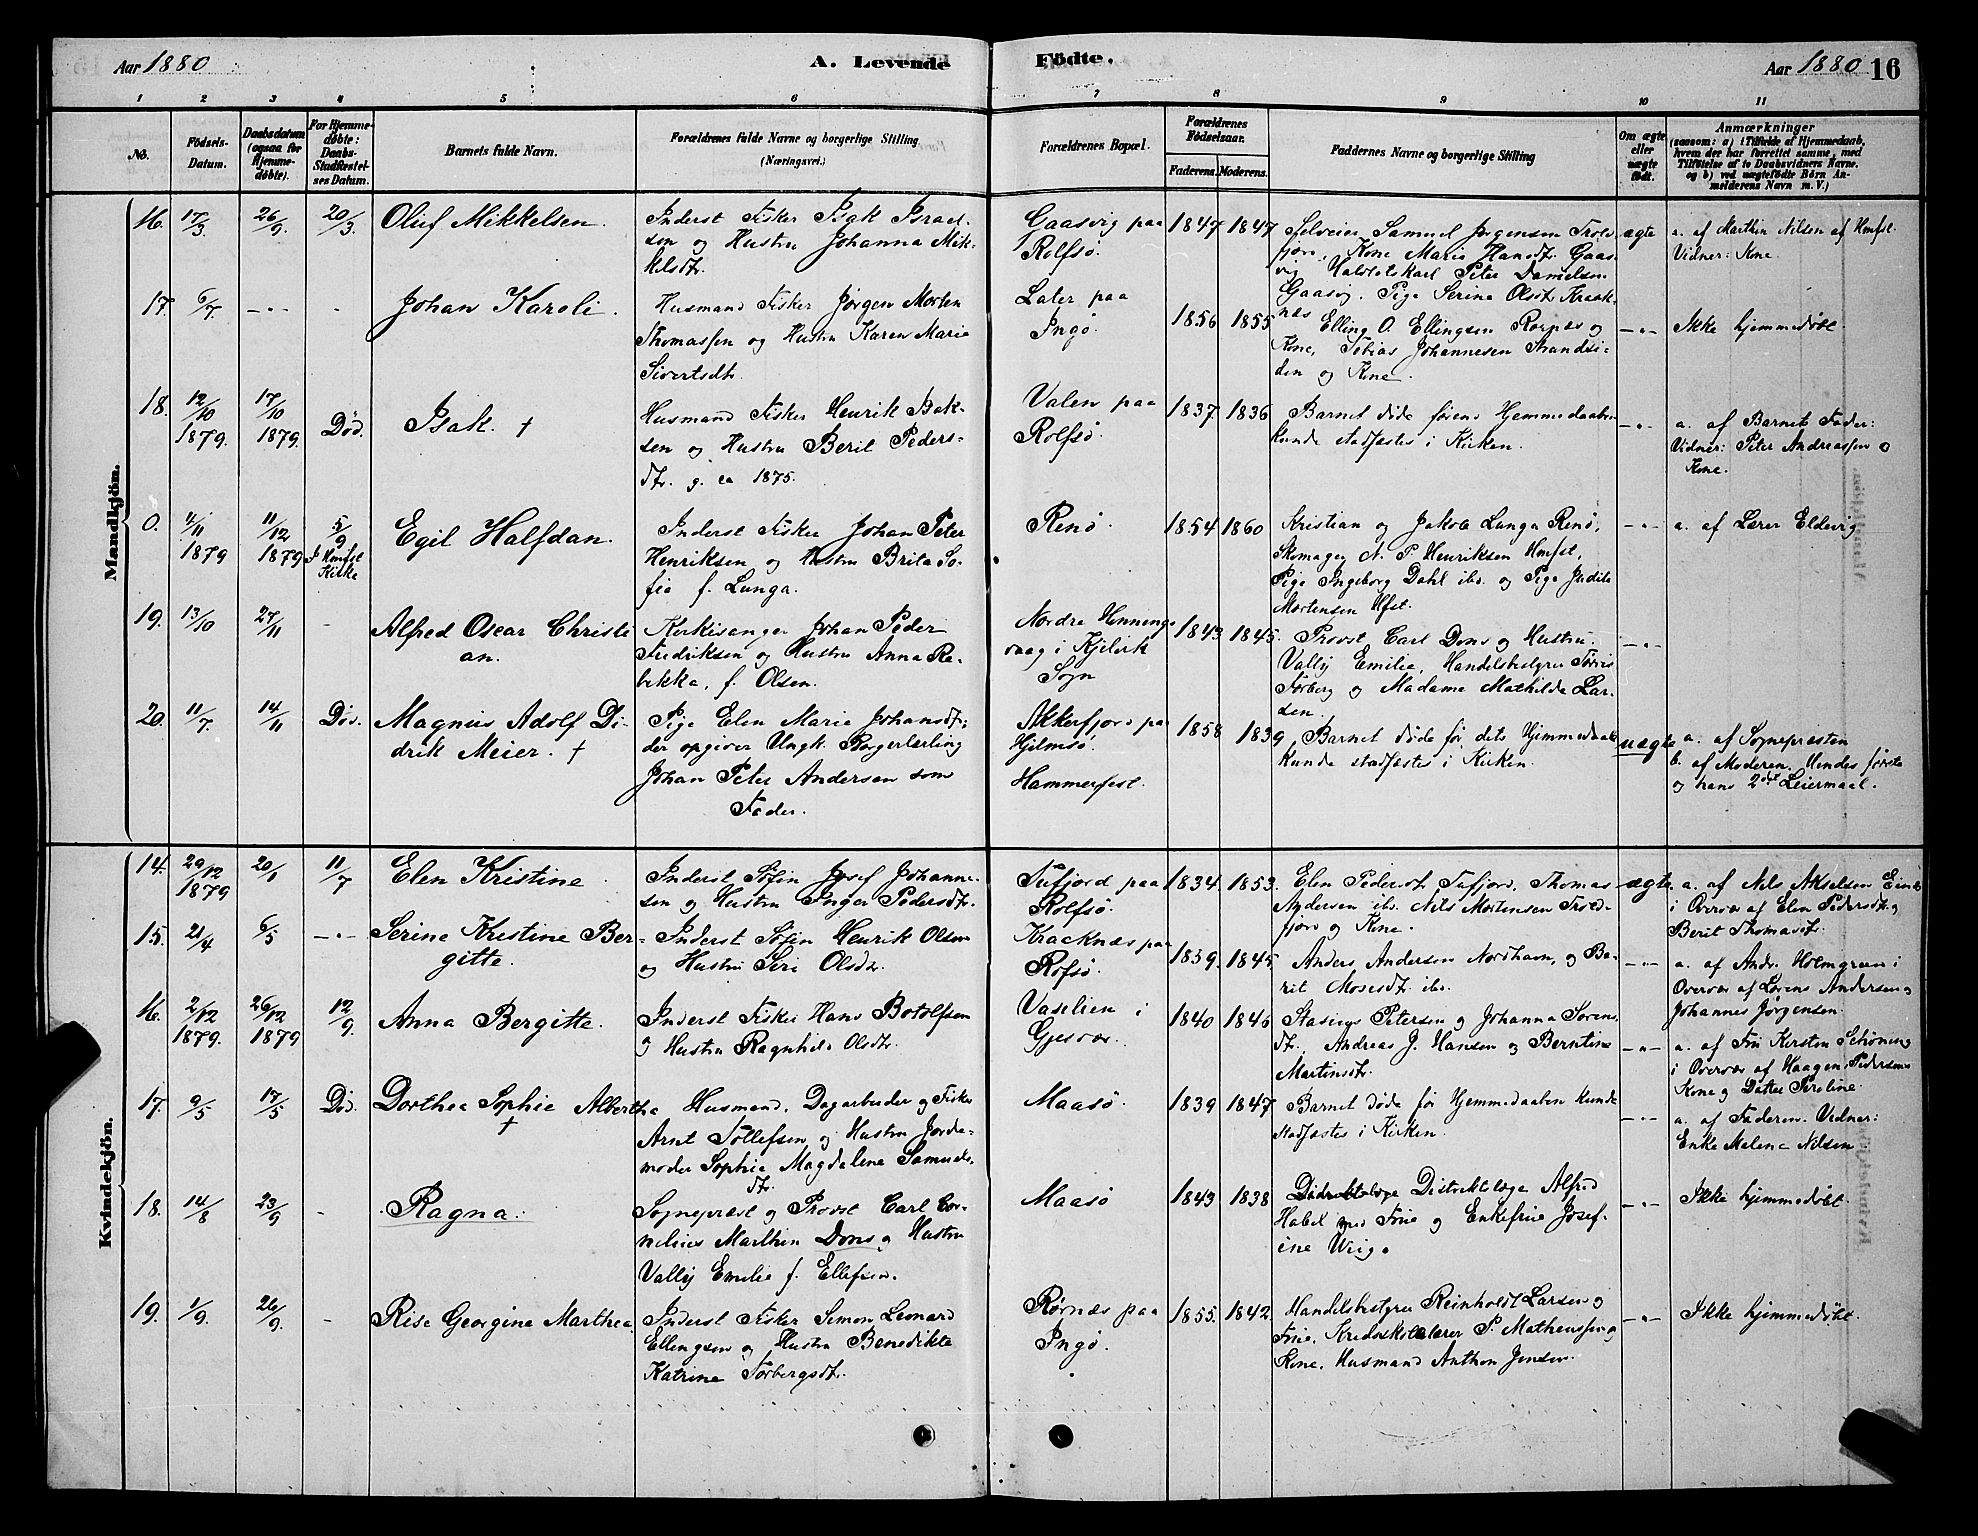 Aar 1880
A. Levende
Födte.
Aar 1880
16
1 2 3 4 5 6 7 8 9 10 11
No.
Födsels-Datum.
Daabsdatum (ogsaa for Hjemmedöbte).
For Hjemmedöbte: Daabs-Stadfæstelses Datum.
Barnets fulde Navn.
Forældrenes fulde Navne og borgerlige Stilling
(Næringsvei.)
Forældrenes Bopæl.
Forældrenes Födselsaar.
Faderens. Moderens.
Faddernes Navne og borgerlige Stilling
Om ægte eller uægte født.
Anmærkninger
(saasom: a) i Tilfælde af Hjemmedaab, hvem der har forrettet samme, med Tilföielse af to Daabsvidners Navne, og b) ved uægtefödte Börn Anmelderens Navn m. V.)
Mandkjön.
16. 17/3 26/9 20/3
Oluf Mikkelsen.
Inderst Fisker Isak Israel-
sen og Hustru Johanna Mik-
kelsdtr.
Gaasvig paa
Rolfsö.
1847 1847
Selveier Samuel Jørgensen Trols-
fjord, Kone Marie Hansdtr. Gaas-
vig Peter Danielsen
Gaasvig. Pige Serine Olsdtr Kraak-
næs
ægte
a. af Marthin Nilsen af Hmfst.
Vidner: Kone.
17. 6/7 -"- -
Johan Karoli.
Husmand Fisker Jørgen Morten
Thomassen og Hustru Karen Marie
Sivertsdtr.
Later paa
Ingö.
1856 1855
Elling O. Ellingsen Rørnæs og
Kone, Tobias Johannesen Strandsi-
den og Kone.
-"-
Ikke hjemmedöbt.
18. 12/10 1879. 17/10 1879. Död.
Isak. +
Husmand Fisker Henrik Isak-
sen og Hustru Berit Peders-
dtr. g. ca 1875.
Valen paa
Rolfsö.
1837 1836
Barnet døde førend Hjemmedaaben
kunde stadfæstes i Kirken.
-"-
a. af Barnet Fader:
Vidner: Peter Andreassen o
Kone.
0. 4/11 1879 11/12 1879 5/9 I Hmfst Kirke
Egil Halfdan.
Inderst Fisker Johan Peter
Henriksen og Hustru Brita So-
fia f. Lunga.
Renö
1854 1860
Kristian og Jakob Lunga Renö,
Skomager N. P. Henriksen Hmfst,
Pige Ingeborg Dahl ibd. og Pige Judit
Mortensen Hfst.
-"-
a. af Lærer Eldevig
19. 13/10 27/11 -
Alfred Oscar Christi
an.
Kirkesanger Johan Peder
Fredriksen og Hustru Anna Re-
bekka, f. Olsen.
Nordre Henning-
vaag i Kjelvik
Sogn
1843 1845.
Provst Carl Dons og Hustru
Vally Emilie, Handelsbestyrer
Torberg og Madame Mathilde Lar-
sen.
-"-
20. 11/7 14/11 Död.
Magnus Adolf Di-
drik Meier. +
Pige Elen Marie Johansdtr;
der opgiver Ungk. Borgerlærling
Johan Peter Andersen som
Fader.
Akkerfjord paa
Hjelmsö.
Hammerfest.
1858 1839
Barnet døde før dets Hjemmedaab
kunde stadfæstes i Kirken.
uægte
a. af Sognepræsten
b. af Moderen. Hendes første
og hans 2det Leiermaal.
Kvindekjön.
14. 29/12 1879 20/1 11/7
Elen Kristine
Inderst Söfin Josef Johanne-
sen og Hustru Inger Pedersdtr.
Tufjord paa
Rolfsö.
1834 1853.
Elen Pedersdtr Tufjord, Thomas
Andersen ibd. Nils Mortensen Trold-
fjord og Kone.
ægte
a. af Nils Akselsen
i Overvær af Elen Pedersdtr og
Berit Thomasdtr.
15. 21/4 6/5 -"-
Serine Kristine Ber-
gitte.
Inderst Söfin Henrik Olsen
og Hustru Siri Olsdtr.
Kracknæs paa
Rofsö.
1839. 1845.
Anders Andersen Nordhavn, og Be-
rit Mosesdtr. ibd.
-"-
a. af Andr. Holmgreen i
Overvær af Lorens Andersen og
Johannes Jörgensen.
16. 2/12 1879. 26/12 1879 12/9.
Anna Bergitte.
Inderst Fisker Hans Botolfsen
og Hustru Ragnhild Olsdtr.
Vaselien i
Gjesvær.
1840 1846
Stasius Petersen og Johanna Sörens
dtr. Andreas J. Hansen og Berntine
Martinsdtr.
-"-
a. af Fru Kirsten Schöning
i Overvær af Haagen Pedersens
Kone og Datter Pereline.
17. 9/5 17/5 Död.
Dorthea Sophie Albertha
+
Husmand, Dagarbeider og Fisker
Arnt Tollefsen og Hustru Jorde-
moder Sophie Magdalene Samuels-
dtr.
Maasö
1839 1847
Barnet døde før Hjemmedaaben kunde
stadfæstes i Kirken.
-"-
a. af Faderen. Vidner:
Enke Malene Nilsen
18. 14/8 23/9 -
Ragna.
Sognepræst og Provst Carl Cor-
nelius Marthin Dons og Hustru
Vally Emilie f. Ellefsen.
Maasö
1843 1838
Distriktslæge Alfred
Habel med Frue og Enkefrue Josef-
ine
-"-
Ikke hjemmedöbt.
19. 1/9. 26/9. -
Rise Georgine Marthea.
Inderst Fisker Simon Leonard
Ellingsen og Hustru Benedikte
Katrine Torbergsdtr.
Rørnæs paa
Ingö.
1855. 1842.
Handelsbestyrer Reinholdt Larsen og
Frue, Kredsskolelærer P. Matheussen og
Kone, Husmand Anthon Jensen.
-"-
Ikke hjemmedöbt.